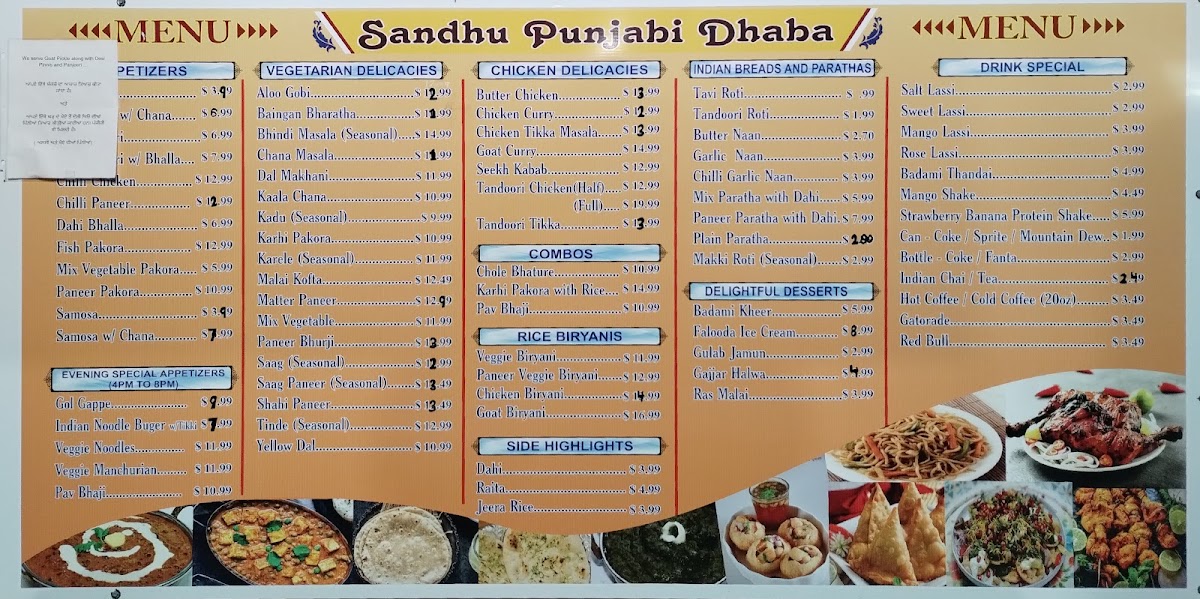 MENU
Sandhu Punjabi Dhaba
MENU
We serve Goat
along with
and
PETIZERS
$ 3.99
w/ Chana...... $ 6.99
$ 6.99
w/ Bhalla.... $ 7.99
Chilli Chicken............... $ 12.99
Chilli Paneer............... $ 12.99
Dahi Bhalla............... $ 6.99
Fish Pakora............... $ 12.99
Mix Vegetable Pakora..... $ 5.99
Paneer Pakora............ $ 10.99
Samosa..................... $ 3.99
Samosa w/ Chana......... $ 7.99
EVENING SPECIAL APPETIZERS
(4PM TO 8PM)
Gol Gappe.................. $ 9.99
Indian Noodle Buger w/Tikki $ 7.99
Veggie Noodles............ $ 11.99
Veggie Manchurian....... $ 11.99
Pav Bhaji.................. $ 10.99
VEGETARIAN DELICACIES
Aloo Gobi.................. $ 12.99
Baingan Bharatha......... $ 11.99
Bhindi Masala (Seasonal).... $ 14.99
Chana Masala............... $ 11.99
Dal Makhani............... $ 11.99
Kaala Chana............... $ 10.99
Kadu (Seasonal)............ $ 9.99
Karhi Pakora............... $ 10.99
Karele (Seasonal)......... $ 11.99
Malai Kofta............... $ 12.49
Matter Paneer............ $ 12.99
Mix Vegetable............ $ 11.99
Paneer Bhurji............ $ 13.99
Saag (Seasonal)............ $ 12.99
Saag Paneer (Seasonal)...... $ 13.49
Shahi Paneer............... $ 13.49
Tinde (Seasonal)............ $ 12.99
Yellow Dal.................. $ 10.99
CHICKEN DELICACIES
Butter Chicken............ $ 13.99
Chicken Curry............ $ 12.99
Chicken Tikka Masala...... $ 13.99
Goat Curry............... $ 14.99
Seekh Kabab............... $ 12.99
Tandoori Chicken(Half).... $ 12.99
(Full)..... $ 19.99
Tandoori Tikka............ $ 13.99
COMBOS
Chole Bhature............ $ 10.99
Karhi Pakora with Rice.... $ 14.99
Pav Bhaji.................. $ 10.99
RICE BIRYANIS
Veggie Biryani............ $ 11.99
Paneer Veggie Biryani...... $ 12.99
Chicken Biryani............ $ 14.99
Goat Biryani............... $ 16.99
SIDE HIGHLIGHTS
Dahi........................ $ 3.99
Raita........................ $ 4.99
Jeera Rice.................. $ 3.99
INDIAN BREADS AND PARATHAS
Tavi Roti.................. $ .99
Tandoori Roti............ $ 1.99
Butter Naan............... $ 2.70
Garlic Naan............... $ 3.99
Chilli Garlic Naan......... $ 3.99
Mix Paratha with Dahi..... $ 5.99
Paneer Paratha with Dahi. $ 7.99
Plain Paratha............... $ 2.90
Makki Roti (Seasonal)...... $ 2.99
DELIGHTFUL DESSERTS
Badami Kheer............ $ 5.99
Falooda Ice Cream......... $ 8.99
Gulab Jamun............... $ 2.99
Gajjar Halwa............... $ 4.99
Ras Malai.................. $ 3.99
DRINK SPECIAL
Salt Lassi.................. $ 2.99
Sweet Lassi............... $ 2.99
Mango Lassi............... $ 3.99
Rose Lassi.................. $ 3.99
Badami Thandai............ $ 4.99
Mango Shake............... $ 4.49
Strawberry Banana Protein Shake..... $ 5.99
Can - Coke / Sprite / Mountain Dew.. $ 1.99
Bottle - Coke / Fanta......... $ 2.99
Indian Chai / Tea............ $ 2.49
Hot Coffee / Cold Coffee (20oz)...... $ 3.49
Gatorade..................... $ 3.49
Red Bull..................... $ 3.49